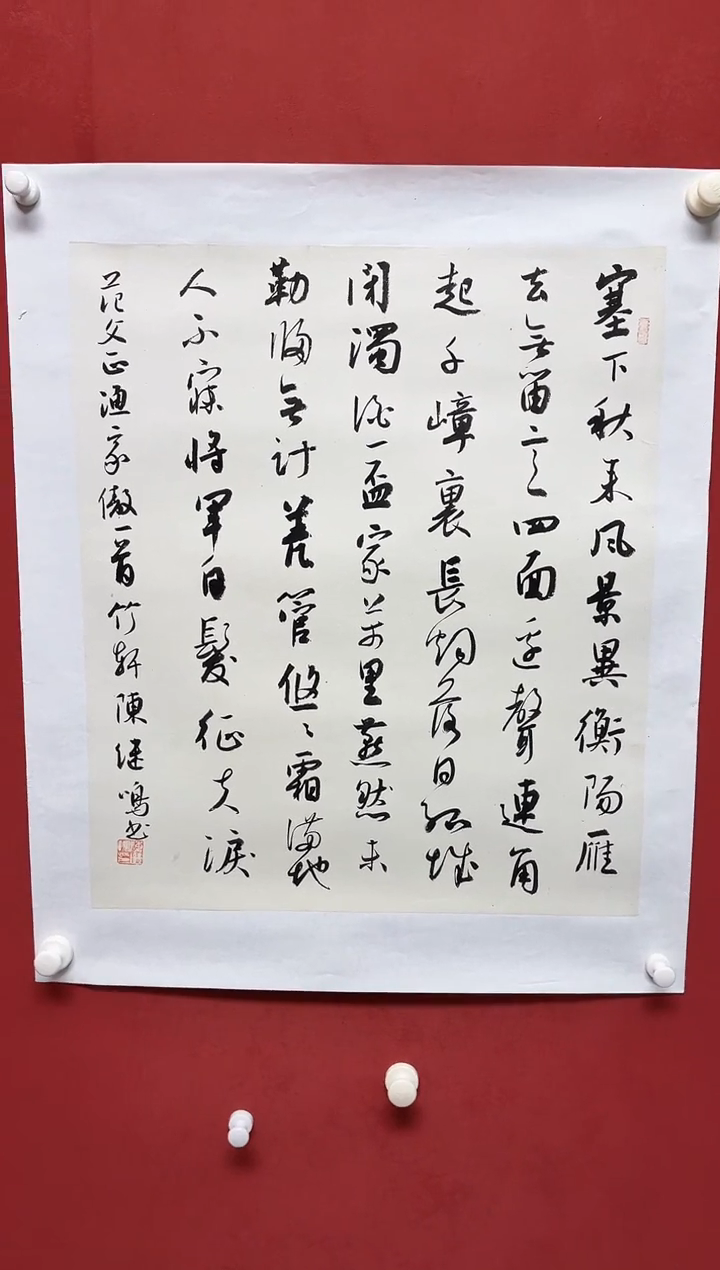 塞下秋来風景異衡陽雁
去無留意四面邊聲連角
起千嶂裏長烟落日孤城
閉濁酒一盃家萬里燕然未
勒歸無計羌管悠々霜滿地
人不寐將軍白髮征夫淚
范文正漁家傲一首竹軒陳继鳴书